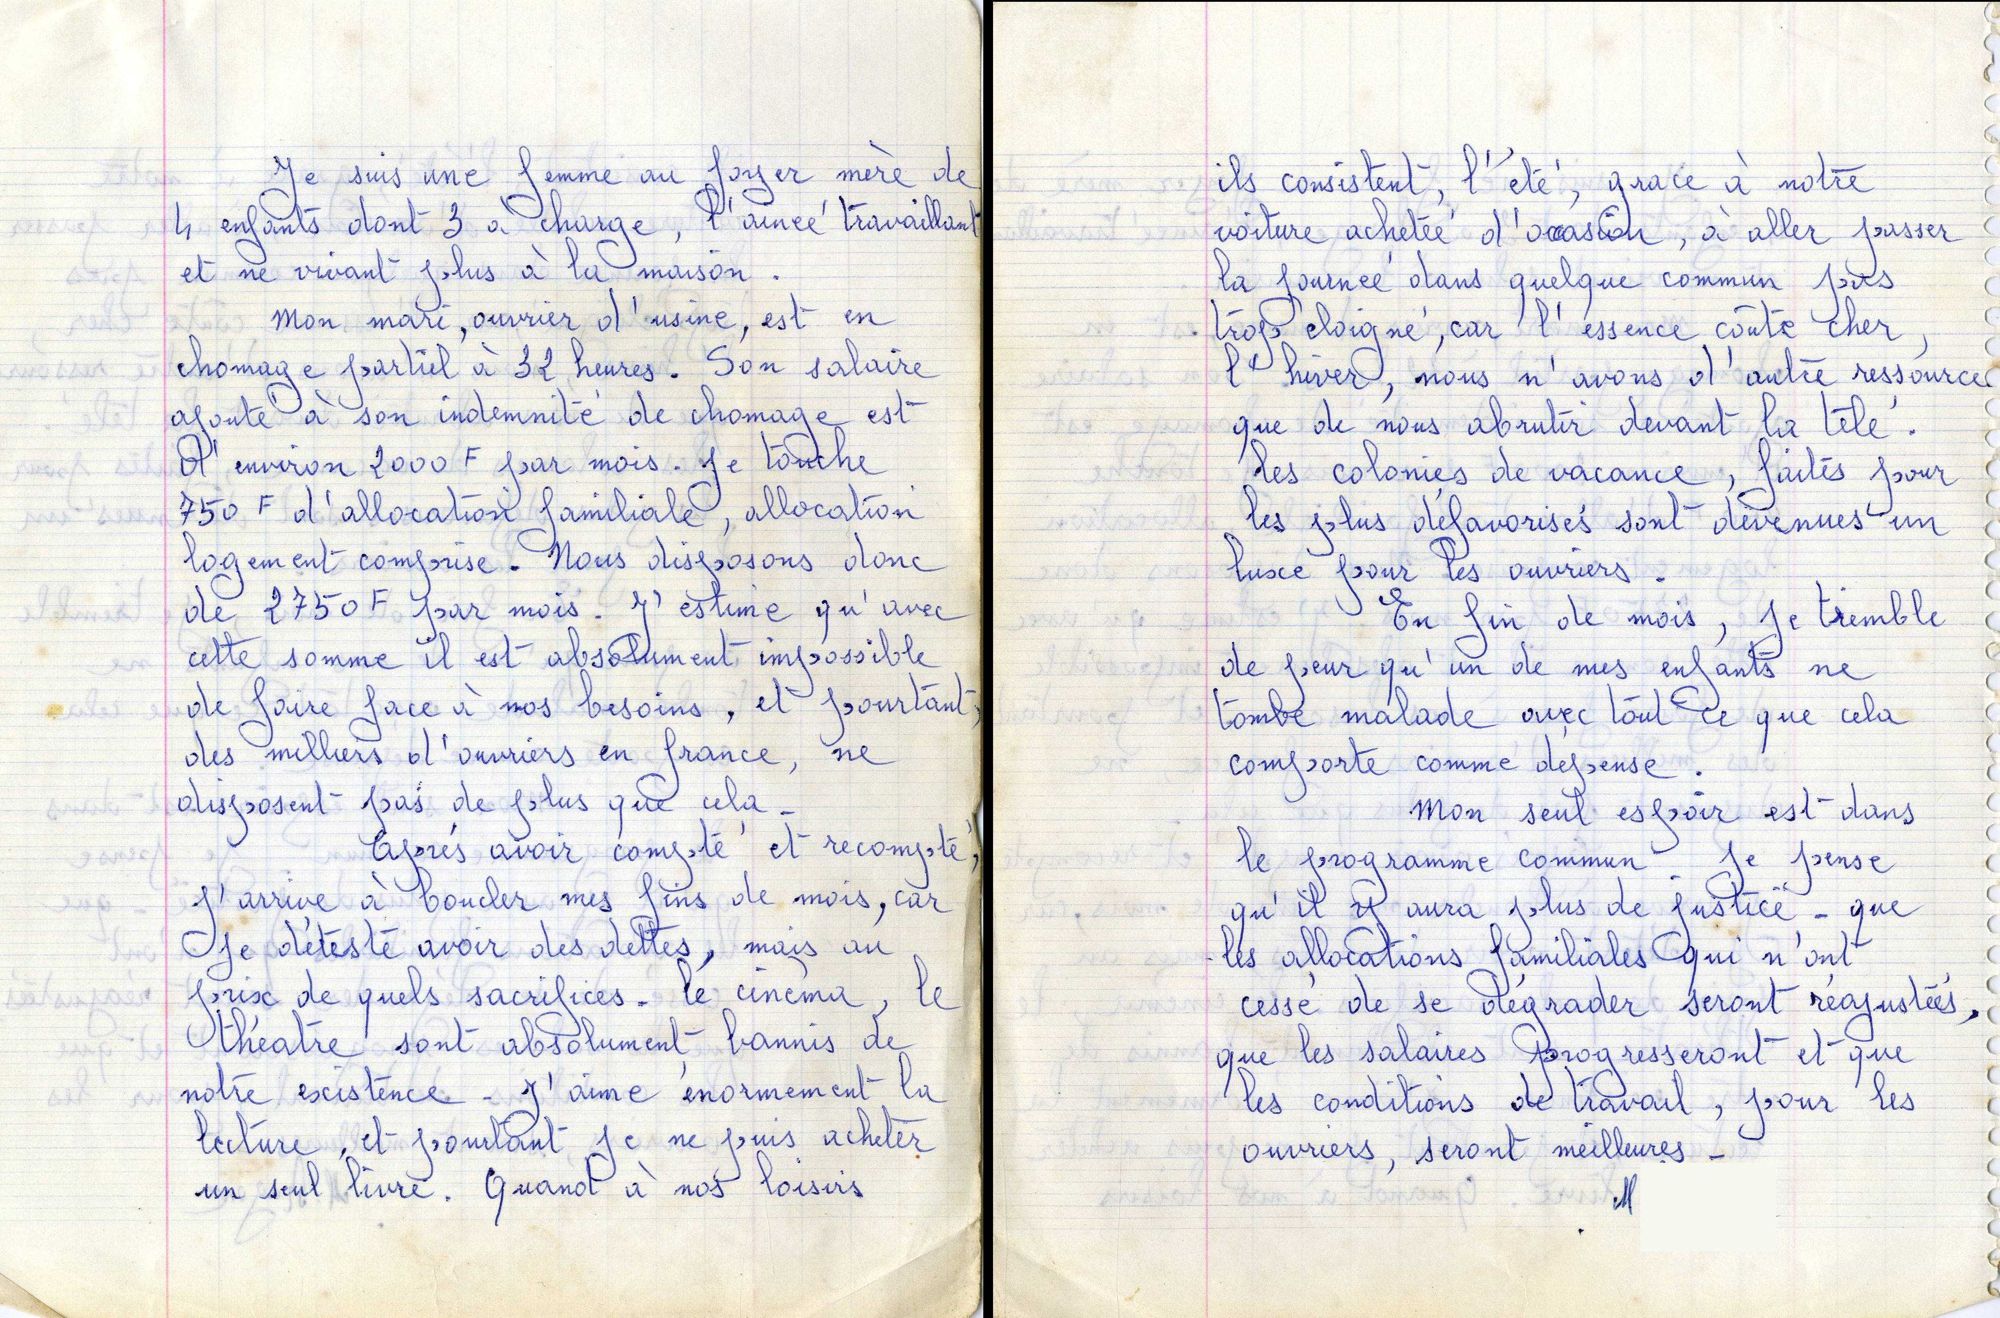 Je suis une femme au foyer mère de
4 enfants dont 3 à charge, l'ainée travaillant
et ne vivant plus à la maison.
Mon mari, ouvrier d'usine, est en
chomage partiel à 32 heures. Son salaire
ajouté à son indemnité de chomage est
d'environ 2000 F par mois. Je touche
750 F d'allocation familiale, allocation
logement comprise. Nous disposons donc
de 2750 F par mois. J'estime qu'avec
cette somme il est absolument impossible
de faire face à nos besoins, et pourtant,
des milliers d'ouvriers en france, ne
disposent pas de plus que cela.
Après avoir compté et recompté,
j'arrive à boucler mes fins de mois, car
je déteste avoir des dettes, mais au
prix de quels sacrifices. Le cinéma, le
théatre sont absolument bannis de
notre existence. J'aime énormement la
lecture, et pourtant, je ne puis acheter
un seul livre. Quand à nos loisirs
ils consistent, l'été, grace à notre
voiture achetée d'occasion, à aller passer
la journée dans quelque commun pas
trop éloigné, car l'essence coûte cher,
l'hiver, nous n'avons d'autre ressource
que de nous abrutir devant la télé.
les colonies de vacance, faites pour
les plus défavorisés sont devenues un
luxe pour les ouvriers.
En fin de mois, je tremble
de peur qu'un de mes enfants ne
tombe malade avec tout ce que cela
comporte comme dépense.
Mon seul espoir est dans
le programme commun. Je pense
qu'il y aura plus de justice - que
les allocations familiales qui n'ont
cessé de se dégrader seront réajustées,
que les salaires progresseront et que
les conditions de travail, pour les
ouvriers, seront meilleures.
M